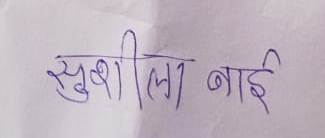 सुशीला बाई